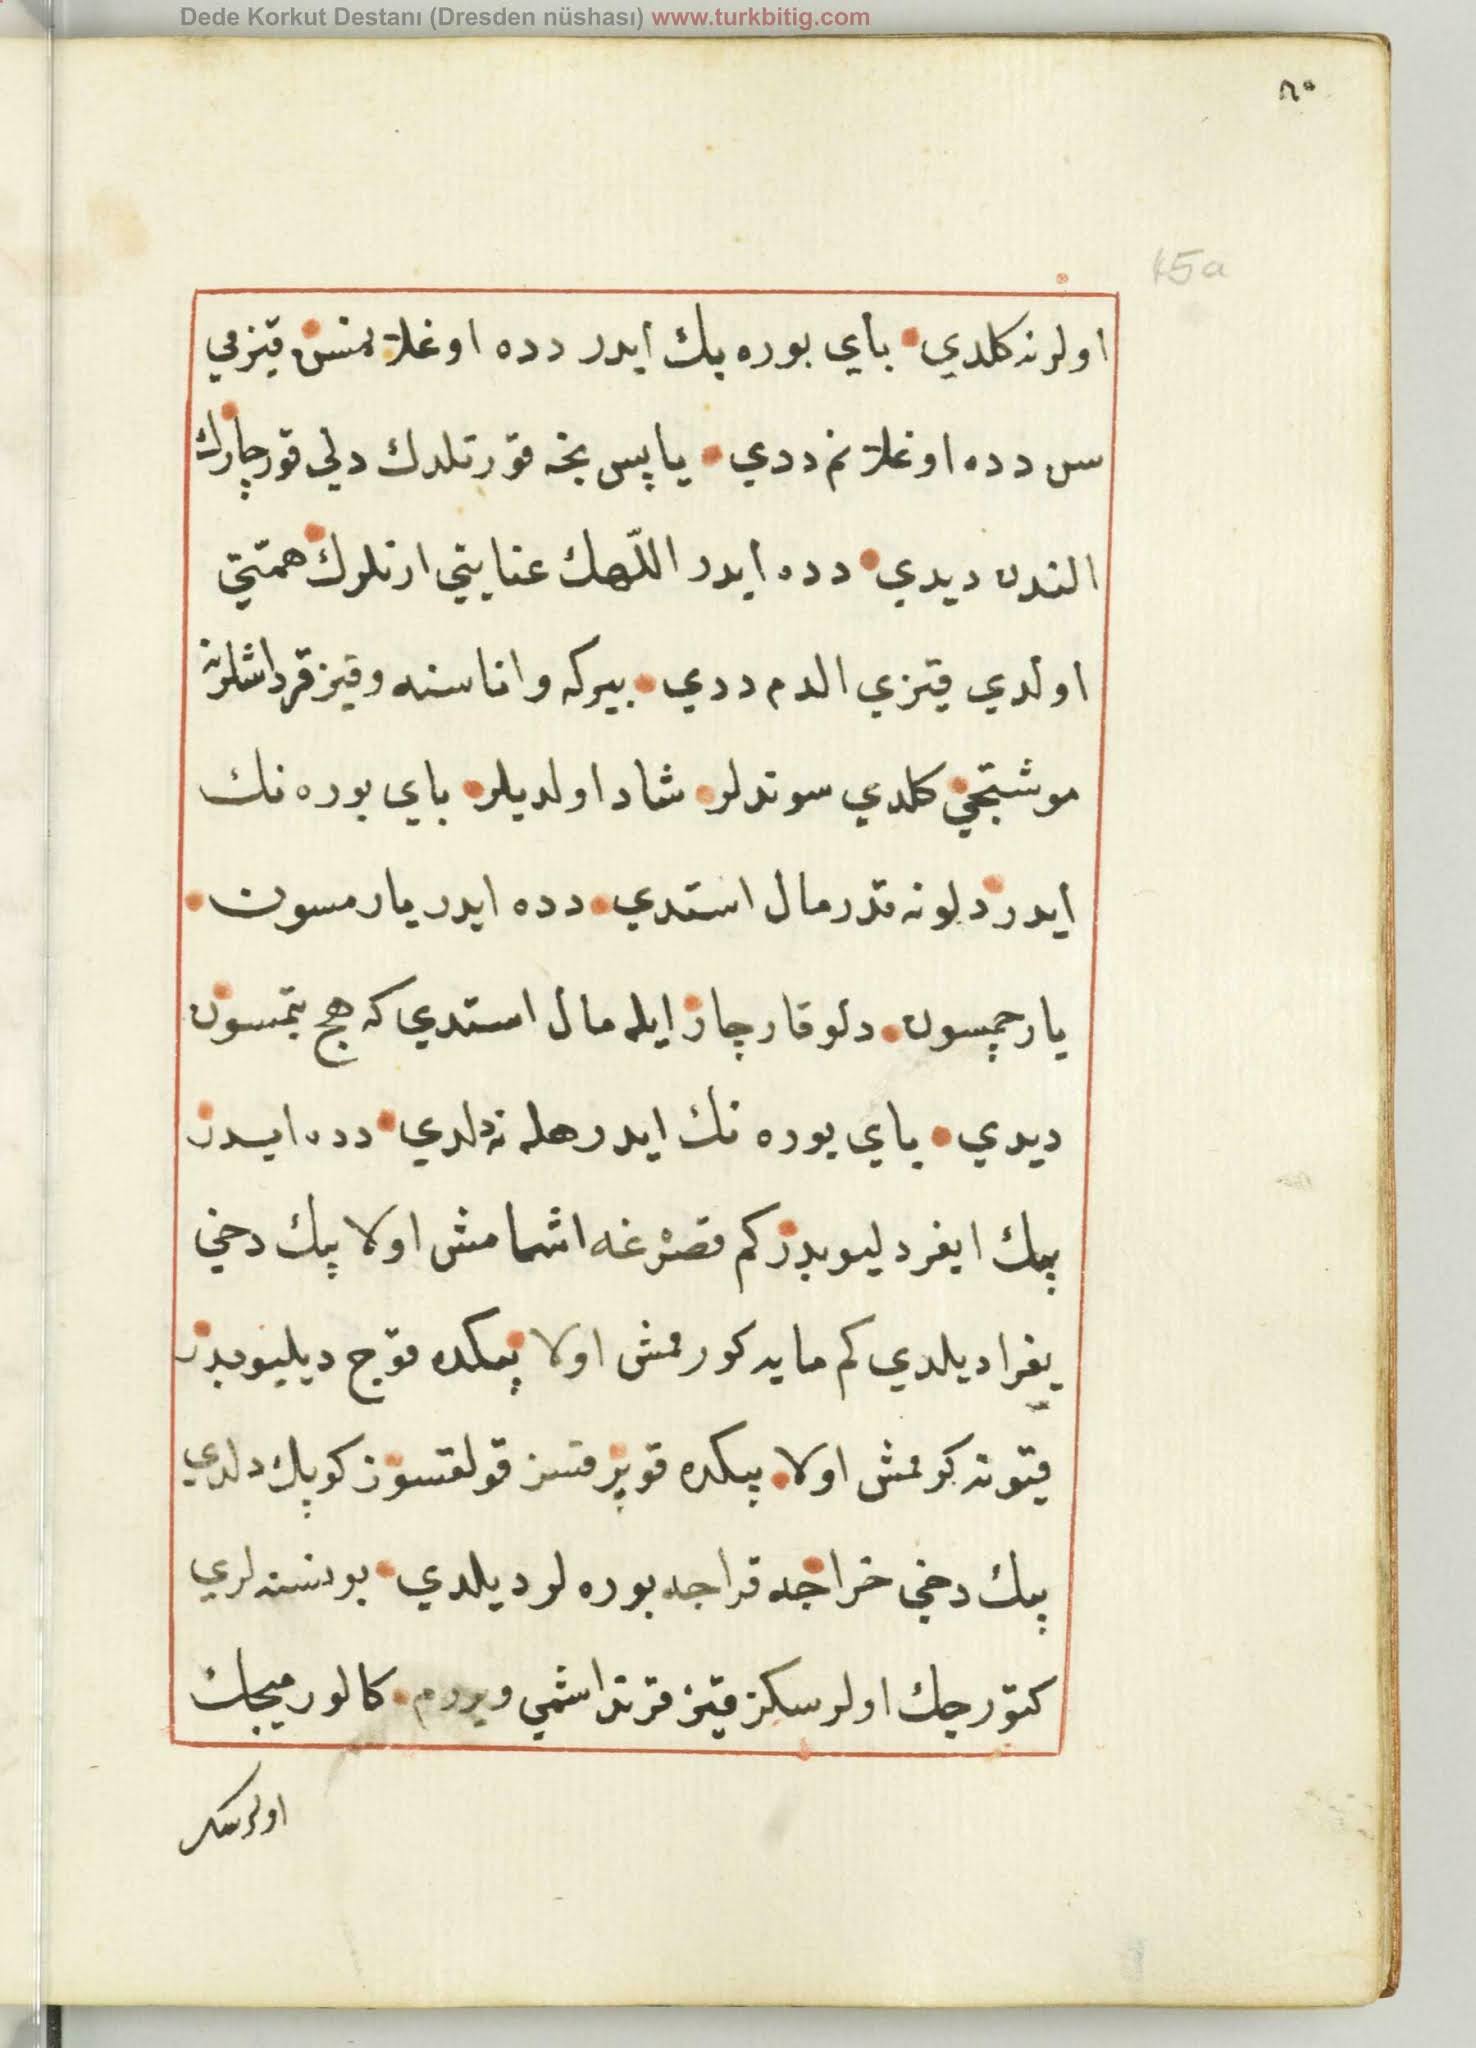 Dede Korkut Destanı (Dresden nüshası) www.turkbitig.com
٨٥
45a
اولرنه كلدي باي بوره بك ايدر دده اوغلانمسن قيزمي
سن دده اوغلانم ددي يا پس نجه قورتلدك دلي قورچارك
الندن ديدي دده ايدر اللّهك عنايتي ارنلرك همّتي
اولدي قيزي الدم ددي بيركه واناسنه وقيز قرداشلرنه
موشتجي كلدي سوندلر شاد اولديلر باي بوره نك
ايدر دلو نه قدر مال استدي دده ايدر يارمسون
يارچمسون دلو قارچار ايله مال استدي كه هيچ بتمسون
ديدي باي بوره نك ايدر هله نه دلدي دده ايدر
بيك ايغر دليوبدر كم قصرغه اشمامش اولا بيك دخي
بغرا ديلدي كم مايه كورممش اولا بيكده قوچ ديليوبدر
قيون كورممش اولا بيكده قويرقسز قولقسوز كوپك دلدي
بيك دخي خراجه قراجه بوره لر ديلدي بو نسنه لري
كتورجك اولرسكز قيز قرنداشمي ويررم كالورميجك
اولرسكز